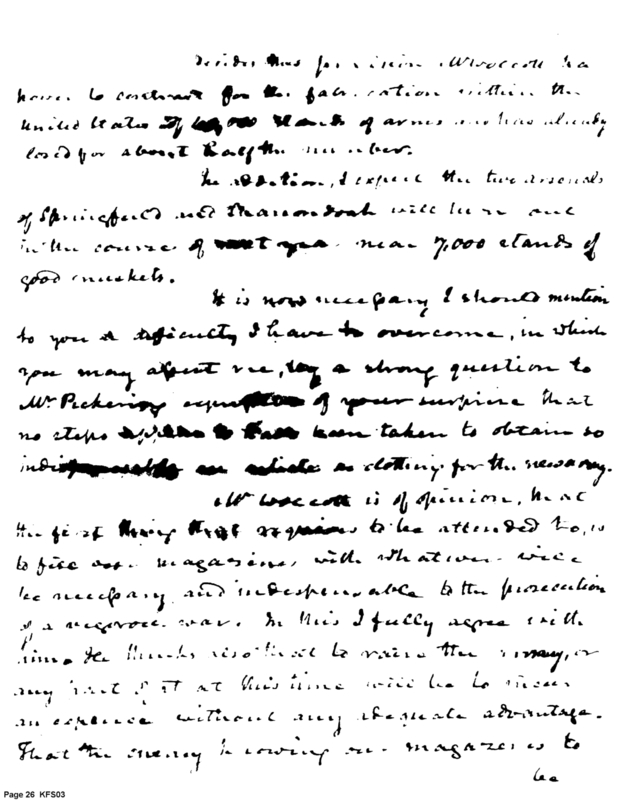 Besides this provision Mr Wolcott has
power to contract for the fabrication within the
United States of 40,000 stands of arms and has already
closed for about half the number.
In addition, I expect the two arsenals
of Springfield and Shanondoah will turn out
in the course of next year near 7,000 stands of
good muskets.
It is now necessary I should mention
to you a difficulty I have to overcome, in which
you may assist me, by a strong question to
Mr Pickering expressive of your surprise that
no steps to have been taken to obtain so
indispensable an article as clothing for the new army.
Mr Wolcott is of opinion, that
the first thing that requires to be attended to, is
to fill our magazines, with whatever will
be necessary and indespensable to the prosecution
of a vigorous war. In this I fully agree with
him. He thinks also that to raise the army, or
any part of it at this time will be to incur
an expence without any adequate advantage.
That the enemy knowing our magazines to
be
Page 26 KFS03